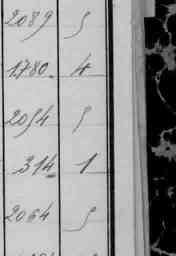 2089 5
1780. 4
2054 5
314 1
2064 5